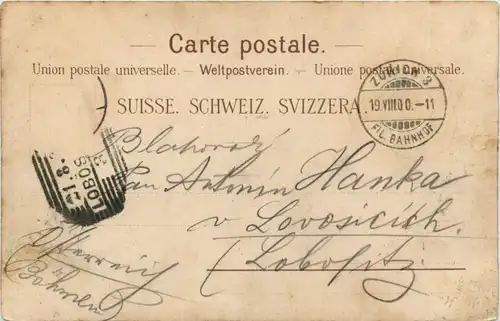 Carte postale.
Union postale universelle. – Weltpostverein. – Unione postale universale.
SUISSE. SCHWEIZ. SVIZZERA
ZÜRICH 3
19.VIII.00.–11
FIL. BAHNHOF
LOBOS
Blahorodý
Pan Antonín Hanka
v Lovosicích
(Lobositz.
Österreich
Böhmen